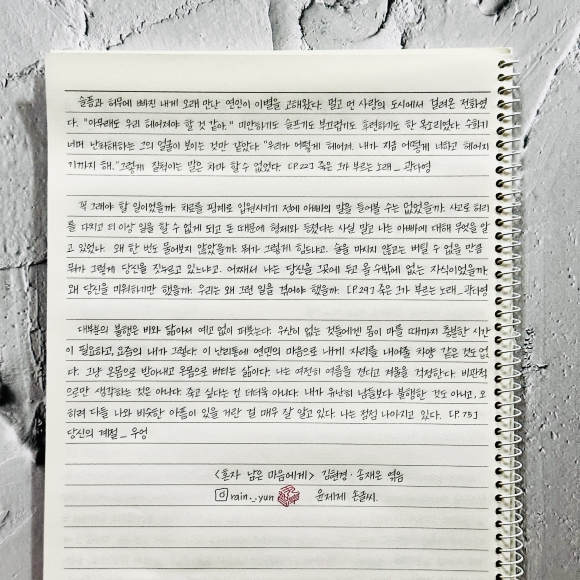 슬픔과 허무에 빠진 내게 오래 만난 연인이 이별을 고해왔다. 멀고 먼 사랑의 도시에서 걸려온 전화였
다. "아무래도 우리 헤어져야 할 것 같아." 미안하기도 슬프기도 부끄럽기도 후련하기도 한 목소리였다. 수화기
너머 난처해하는 그의 얼굴이 보이는 것만 같았다. "우리가 어떻게 헤어져. 내가 지금 어떻게 너하고 헤어지
기까지 해." 그렇게 질척이는 말은 차마 할 수 없었다. [P.22] 죽은 그가 부르는 노래_ 곽다영
꼭 그래야 할 일이었을까. 치료를 핑계로 입원시키기 전에 아빠의 말을 들어볼 수는 없었을까. 사고로 허리
를 다치고 더 이상 일을 할 수 없게 되고 돈 때문에 형제와 등졌다는 사실 말고 나는 아빠에 대해 무엇을 알
고 있었나. 왜 한 번도 물어보지 않았을까. 뭐가 그렇게 힘드냐고. 술을 마시지 않고는 버틸 수 없을 만큼
뭐가 그렇게 당신을 짓누르고 있느냐고. 어째서 나는 당신을 그곳에 두고 올 수밖에 없는 자식이었을까.
왜 당신을 미워하기만 했을까. 우리는 왜 그런 일을 겪어야 했을까. [P.29] 죽은 그가 부르는 노래_곽다영
대부분의 불행은 비와 닮아서 예고 없이 퍼붓는다. 우산이 없는 것들에겐 몸이 마를 때까지 충분한 시간
이 필요하고, 요즘의 내가 그렇다. 이 난리통에 연민의 마음으로 내게 자리를 내어줄 차양 같은 것도 없
다. 그냥 온몸으로 받아내고 온몸으로 버티는 삶이다. 나는 여전히 여름을 견디고 겨울을 걱정한다. 비관적
으로만 생각하는 것은 아니다. 죽고 싶다는 건 더더욱 아니다. 내가 유난히 남들보다 불행한 것도 아니고, 오
히려 다들 나와 비슷한 아픔이 있을 거란 걸 매우 잘 알고 있다. 나는 점점 나아지고 있다. [P.75]
당신의 계절_ 우엉
<혼자 남은 마음에게> 김현경·송재은 엮음
rain._.yun 윤제제 손글씨.